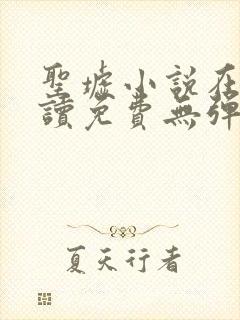 聖墟小說在
讀免費無彈
夏天行者